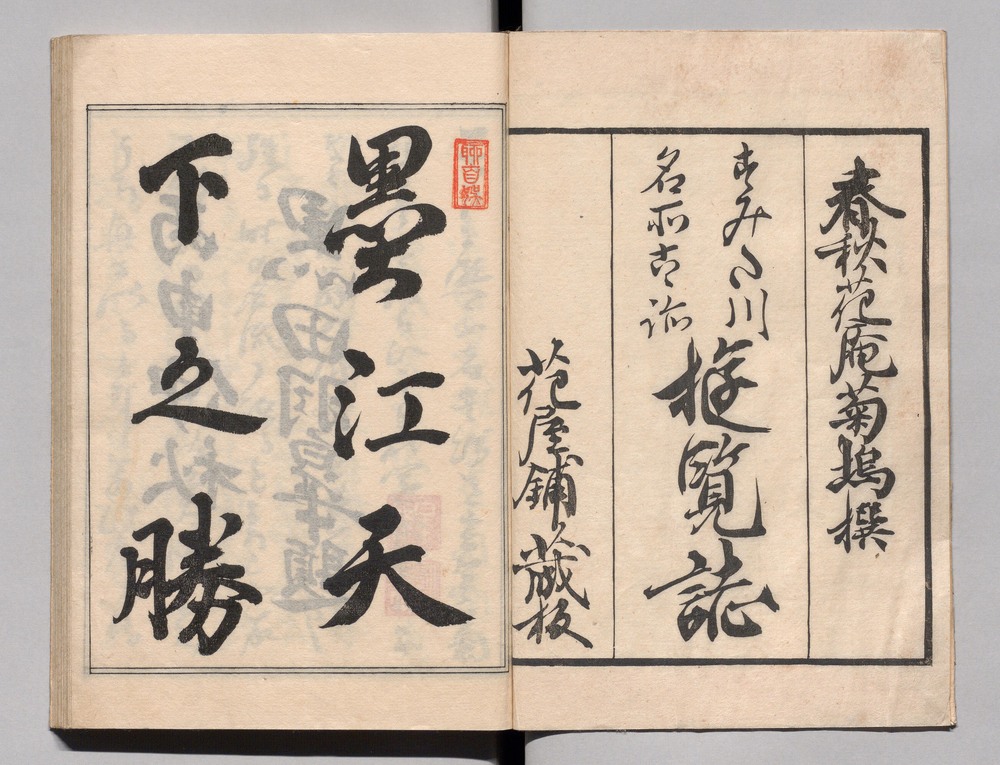 春秋花庵菊塢撰
すみた川
名所古跡
遊覧誌
花屋鋪蔵板
墨江天
下之勝